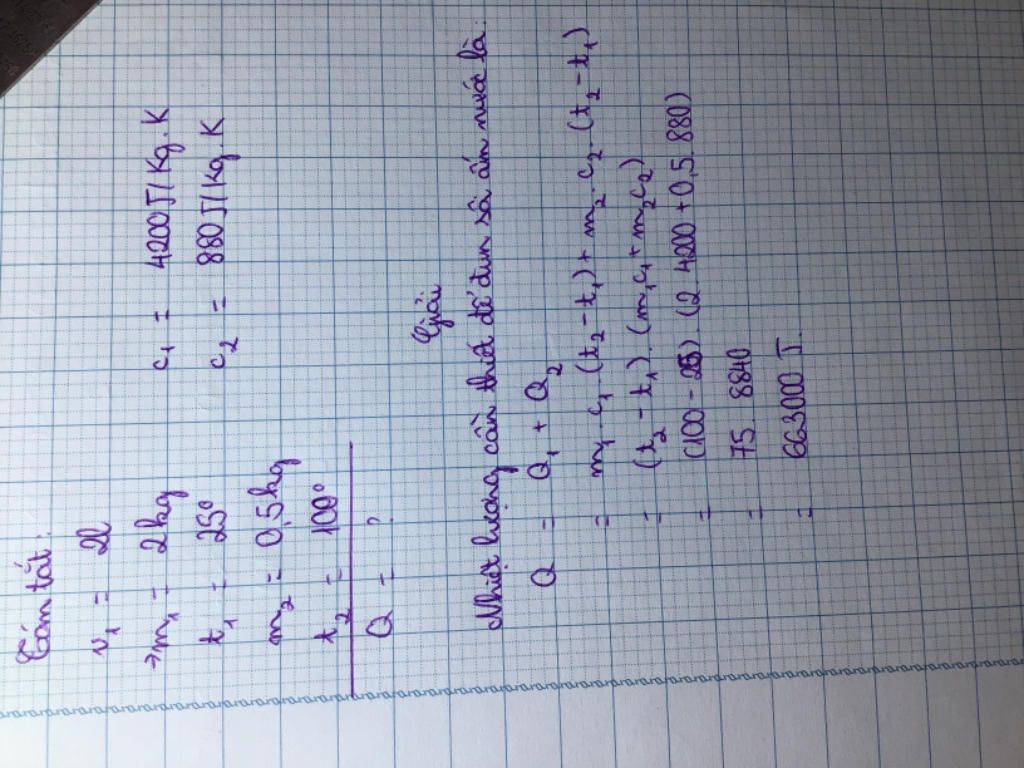 Tóm tắt:
v₁ = 2l
→ m₁ = 2kg c₁ = 4200J/kg.K
t₁ = 25° c₂ = 880J/kg.K
m₂ = 0,5kg
t₂ = 100°
Q = ?
Giải
Nhiệt lượng cần thiết để đun sôi ấm nước là:
Q = Q₁ + Q₂
= m₁.c₁.(t₂-t₁)+m₂.c₂.(t₂-t₁)
= (t₂-t₁).(m₁c₁+m₂c₂)
= (100-25).(2.4200+0,5.880)
= 75.8840
= 663000 J.